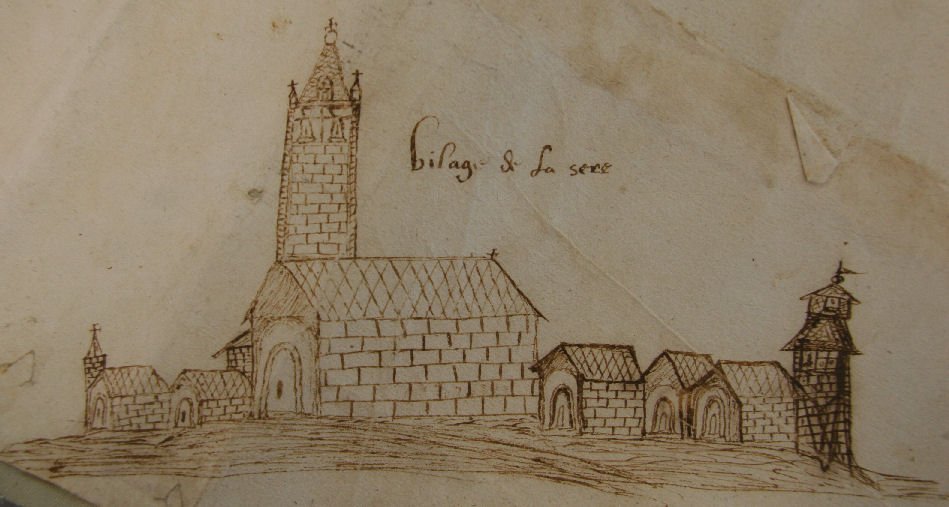 bilage de la sere